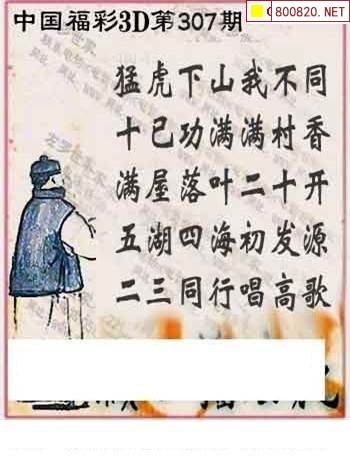 中国福彩3D第307期
800820.NET
猛虎下山我不同
十已功满满村香
满屋落叶二十开
五湖四海初发源
二三同行唱高歌